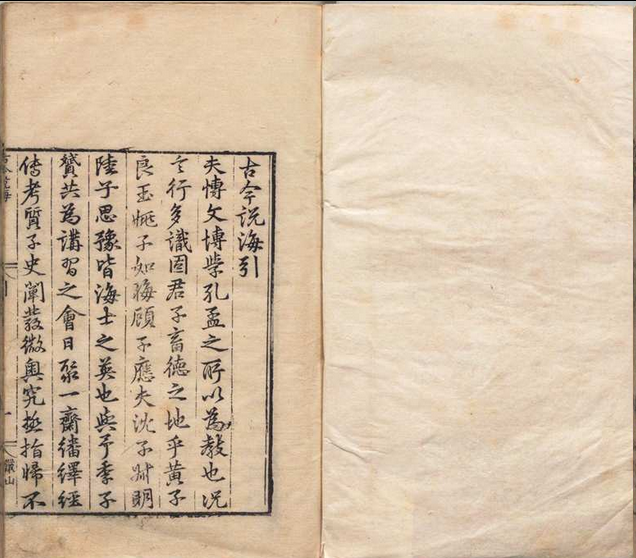 古今説海引
夫博文博學孔孟之所以為教也况
言行多識固君子畜德之地乎黃子
良玉姚子如晦顧子應夫沈子明
陸子思豫皆海士之英也與予季子
贇共為講習之會日聚一齋繙繹經
傳考質子史闡發微奧究極指歸不
古今說海
引
一
儼山